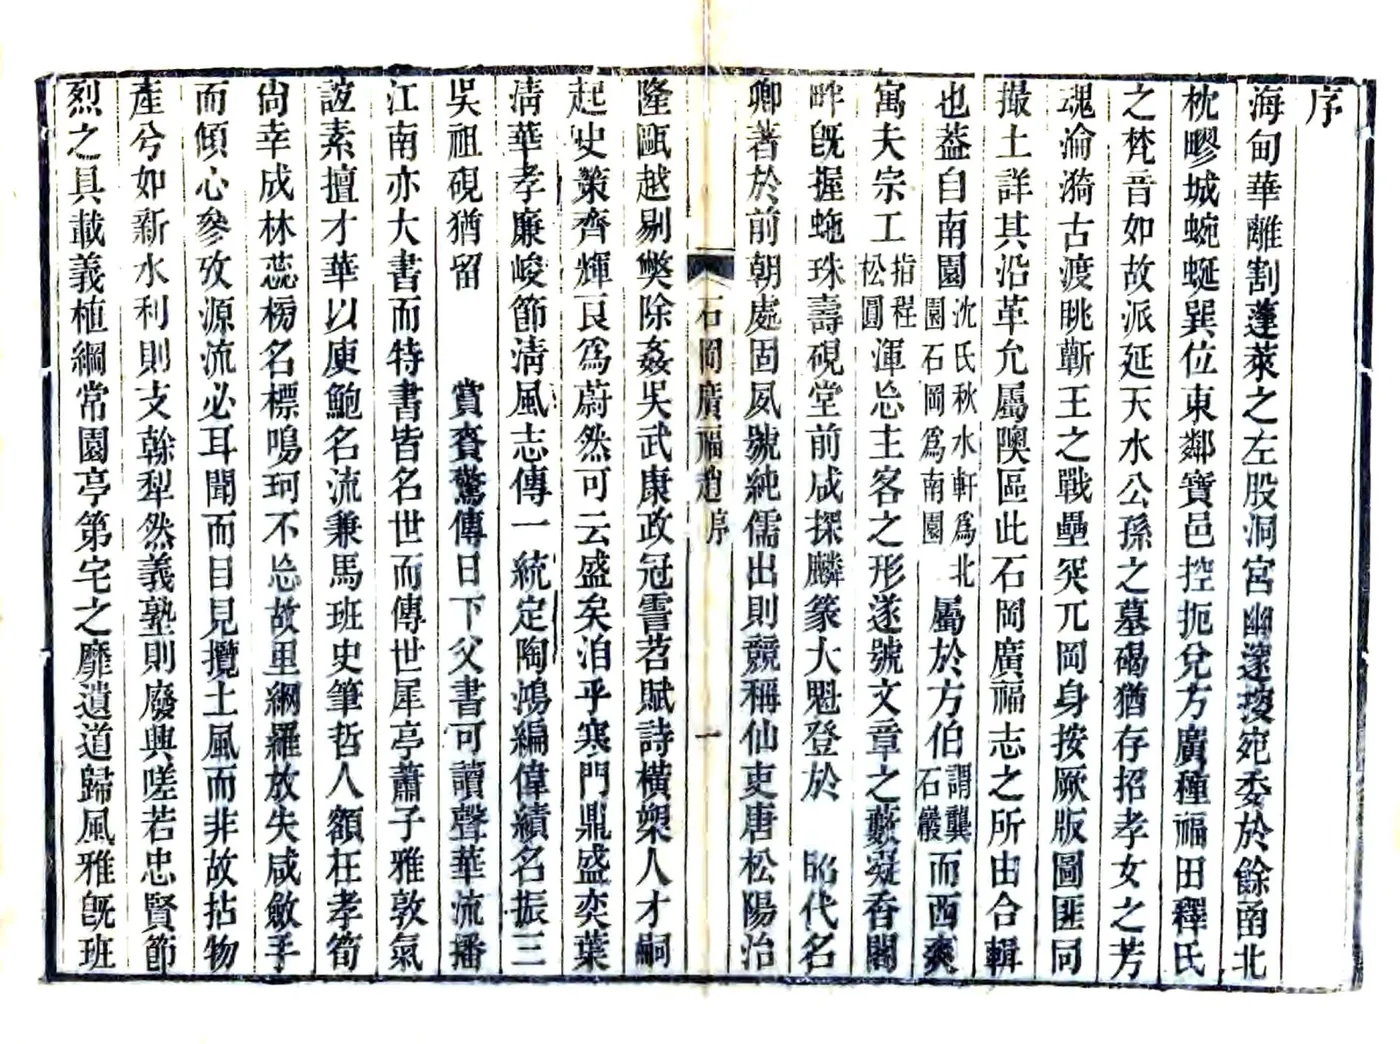 序
海甸華離割蓬萊之左股洞宮幽邃接宛委於餘甬北
枕疁城蜿蜒巽位東鄰寶邑控扼兌方廣種福田釋氏
之梵音如故派延天水公孫之墓碣猶存招孝女之芳
魂淪漪古渡眺蘄王之戰壘突兀岡身按厥版圖匪同
撮土詳其沿革允屬隩區此石岡廣福志之所由合輯
也葢自南園沈氏秋水軒為北園石岡為南園屬於方伯謂龔石巖而西爽
寓夫宗工指程松圓渾忘主客之形遂號文章之藪凝香閣
畔旣握虵珠壽硯堂前咸探麟篆大魁登於 昭代名
卿著於前朝處固夙號純儒出則競稱仙吏唐松陽治
石岡廣福志序 一
隆甌越剔獘除姦吳武康政冠霅苕賦詩橫槊人才嗣
起史策齊輝艮為蔚然可云盛矣洎乎寒門鼎盛奕葉
淸華孝廉峻節淸風志傳一統定陶鴻編偉績名振三
吳祖硯猶留 賞賚驚傳日下父書可讀聲華流播
江南亦大書而特書皆名世而傳世犀亭蕭子雅敦氣
誼素擅才華以庾鮑名流兼馬班史筆哲人額在孝筍
尙幸成林蕊榜名標鳴珂不忘故里網羅放失咸斂手
而傾心參攷源流必耳聞而目見攬土風而非故拈物
產兮如新水利則支榦犁然義塾則廢興嗟若忠賢節
烈之具載義植綱常園亭第宅之靡遺道歸風雅旣班